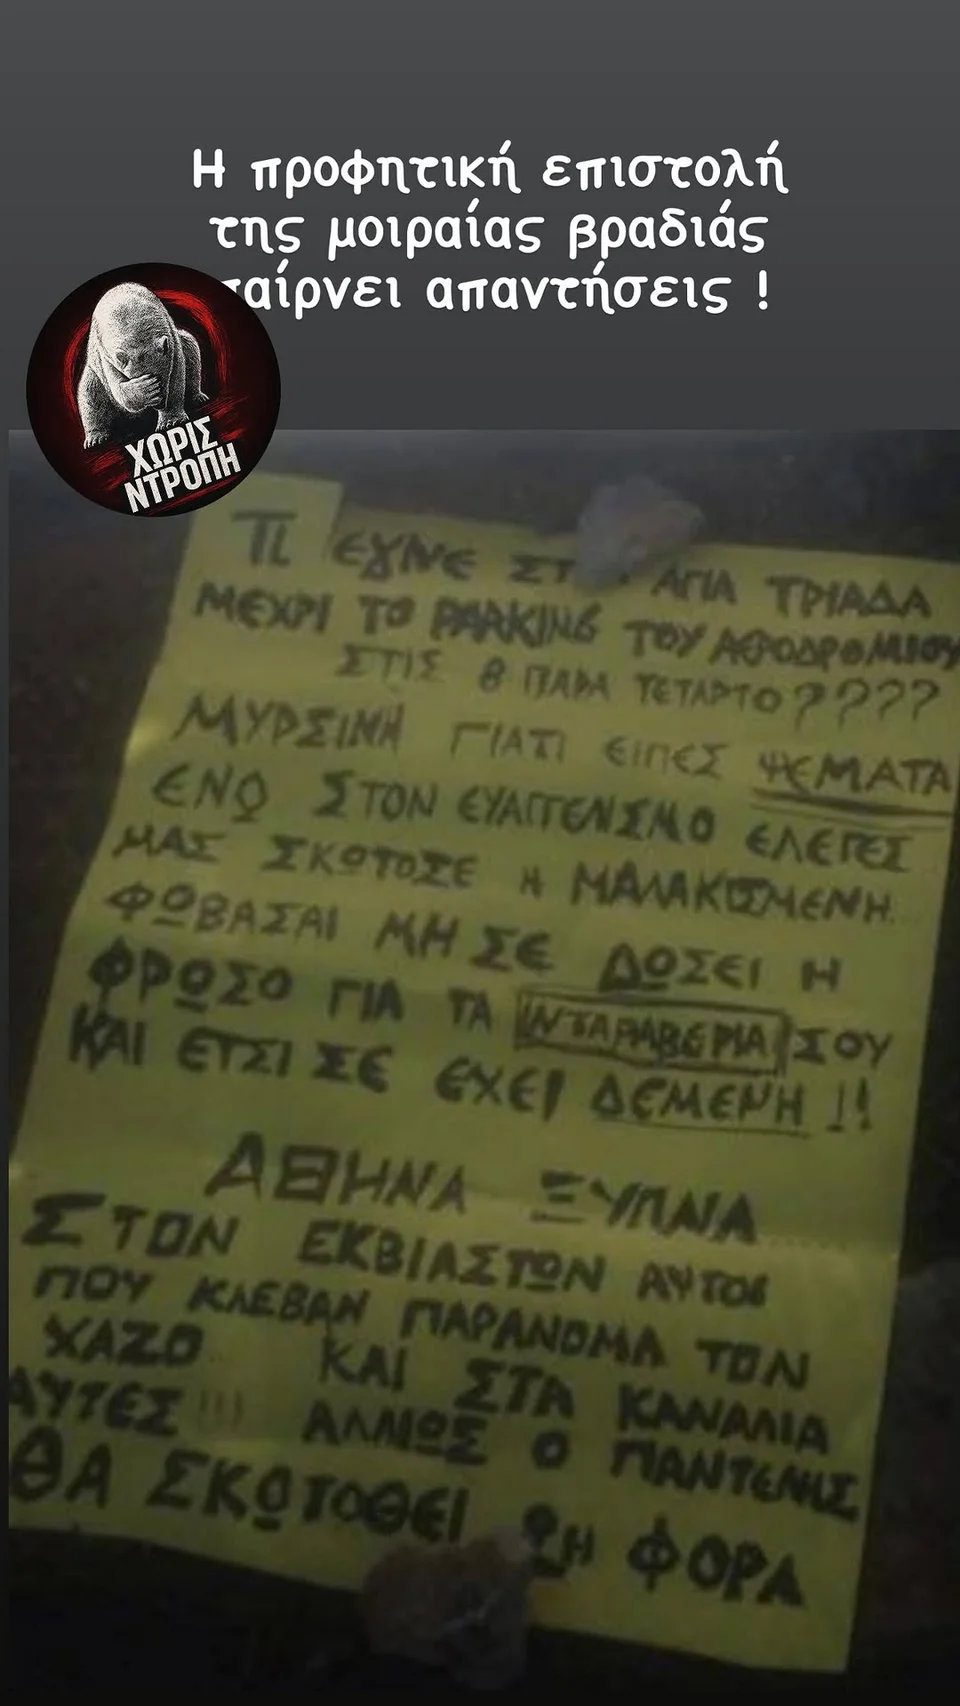 Η προφητική επιστολή
της μοιραίας βραδιάς
παίρνει απαντήσεις !
ΧΩΡΙΣ
ΝΤΡΟΠΗ
ΤΙ ΕΓΙΝΕ ΑΓΙΑ ΤΡΙΑΔΑ
ΜΕΧΡΙ ΤΟ PARKING ΤΟΥ ΑΕΡΟΔΡΟΜΙΟΥ
ΣΤΙΣ 8 ΠΑΡΑ ΤΕΤΑΡΤΟ????
ΜΥΡΣΙΝΗ ΓΙΑΤΙ ΕΙΠΕΣ ΨΕΜΑΤΑ
ΕΝΩ ΣΤΟΝ ΕΥΑΓΓΕΛΙΣΜΟ ΕΛΕΓΕΣ
ΜΑΣ ΣΚΟΤΩΣΕ Η ΜΑΛΑΚΙΣΜΕΝΗ.
ΦΩΒΑΣΑΙ ΜΗ ΣΕ ΔΩΣΕΙ Η
ΦΡΩΣΟ ΓΙΑ ΤΑ ΝΤΑΡΑΒΕΡΙΑ ΣΟΥ
ΚΑΙ ΕΤΣΙ ΣΕ ΕΧΕΙ ΔΕΜΕΝΗ !!
ΑΘΗΝΑ ΞΥΠΝΑ
ΣΤΟΝ ΕΚΒΙΑΣΤΩΝ ΑΥΤΟΙ
ΠΟΥ ΚΛΕΒΑΝ ΠΑΡΑΝΟΜΑ ΤΟΝ
ΧΑΖΟ ΚΑΙ ΣΤΑ ΚΑΝΑΛΙΑ
ΑΥΤΕΣ !!! ΑΛΛΙΩΣ Ο ΠΑΝΤΕΛΗΣ
ΘΑ ΣΚΩΤΟΘΕΙ 2Η ΦΟΡΑ